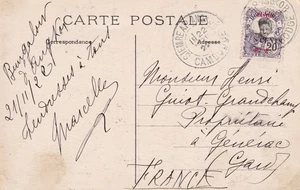 CARTE POSTALE
Correspondance
Adresse
Bungalow
21/11/22
Tendresses à tous
Marcelle
Monsieur Henri
Guiot-Grandchamp
Propriétaire
à Générac
(Gard)
FRANCE